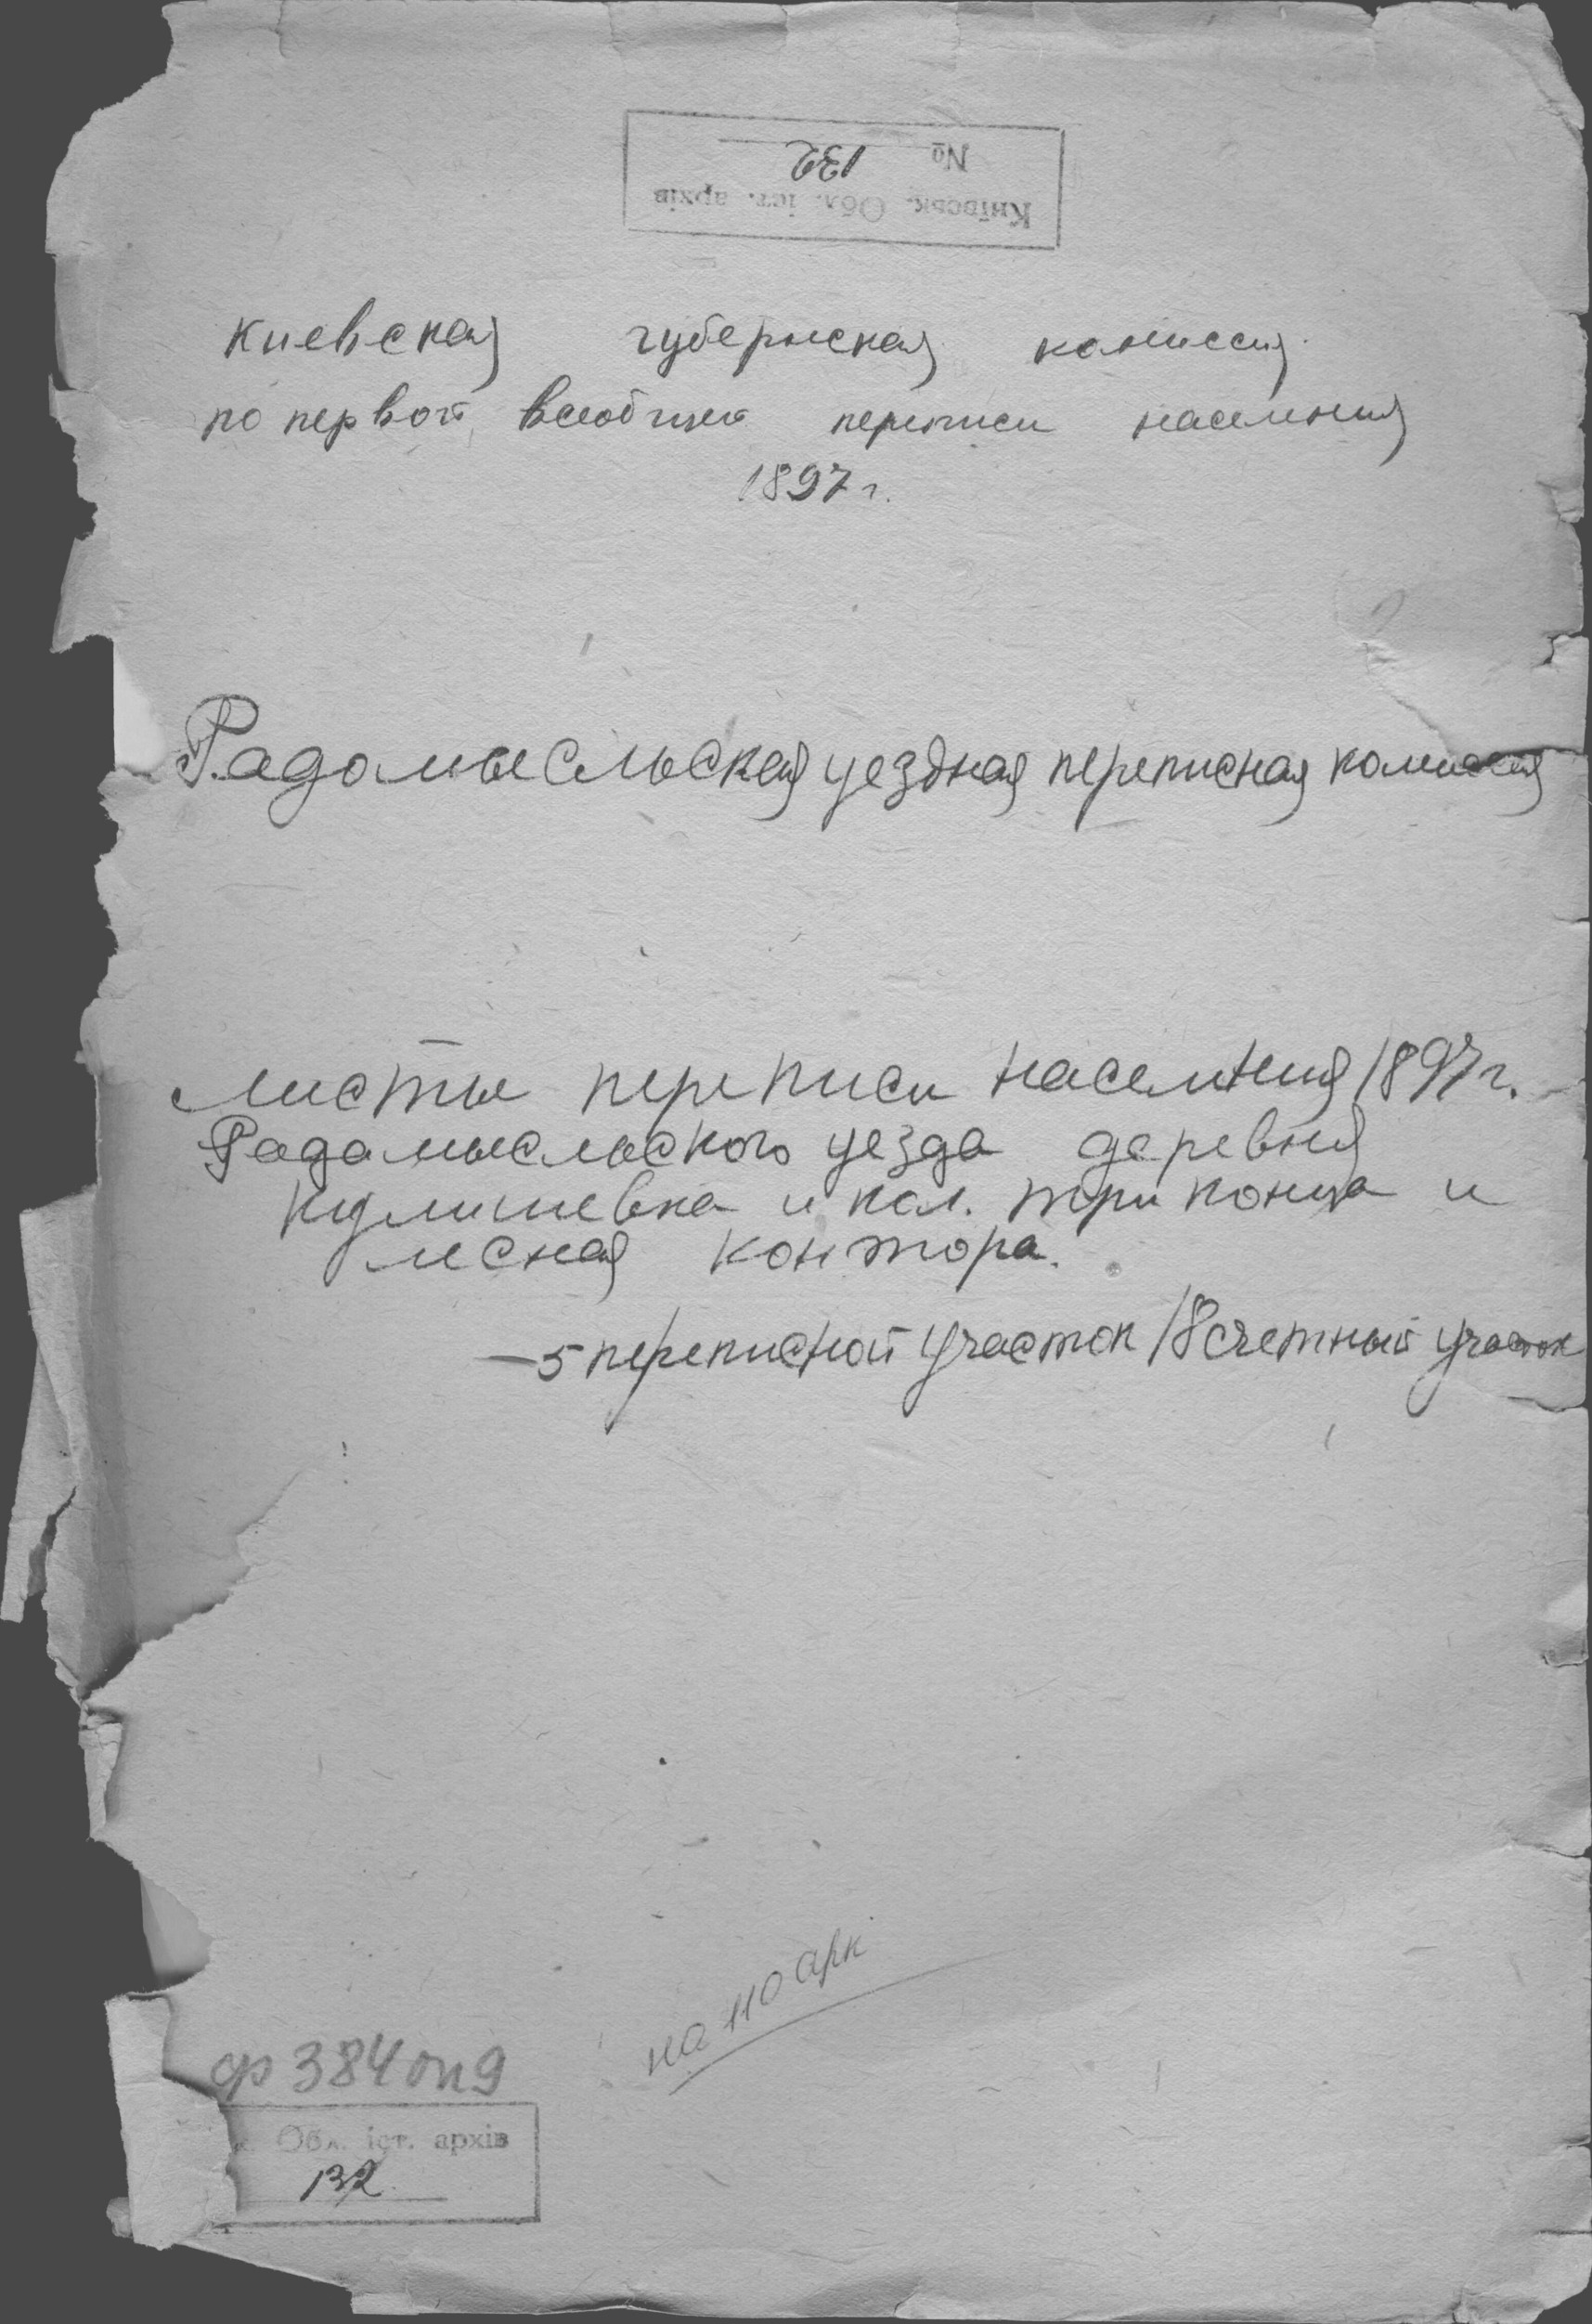 № 132
Київськ. Обл. іст. архів
Киевская губернская комиссия
по первой всеобщей переписи населения
1897 г.
Радомысльская уездная переписная комиссия
Листы переписи населения 1897 г.
Радомысльского уезда деревня
и кол. три конца и
лесная контора.
— 5 переписной участок 18 счетный участок
на 110 арк
ф 384 оп 9
Обл. іст. архів
132